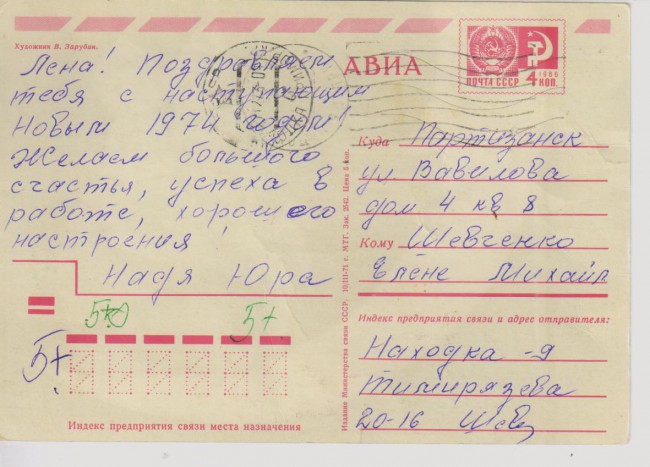 Художник В. Зарубин.
Лена! Поздравляем
тебя с наступающим
Новым 1974 годом!
Желаем большого
счастья, успеха в
работе, хорошего
настроения!
Надя Юра
АВИА
1966
ПОЧТА СССР 4 КОП.
Куда Партизанск
ул. Вавилова
дом 4 кв 8
Кому Шевченко
Елене Михайл
Индекс предприятия связи и адрес отправителя:
Находка -9
Тимирязева
20-16 Шев
5+
5+
5+
Индекс предприятия связи места назначения
Издание Министерства связи СССР. 10/III-71 г. МТГ. Зак. Цена 5 коп.